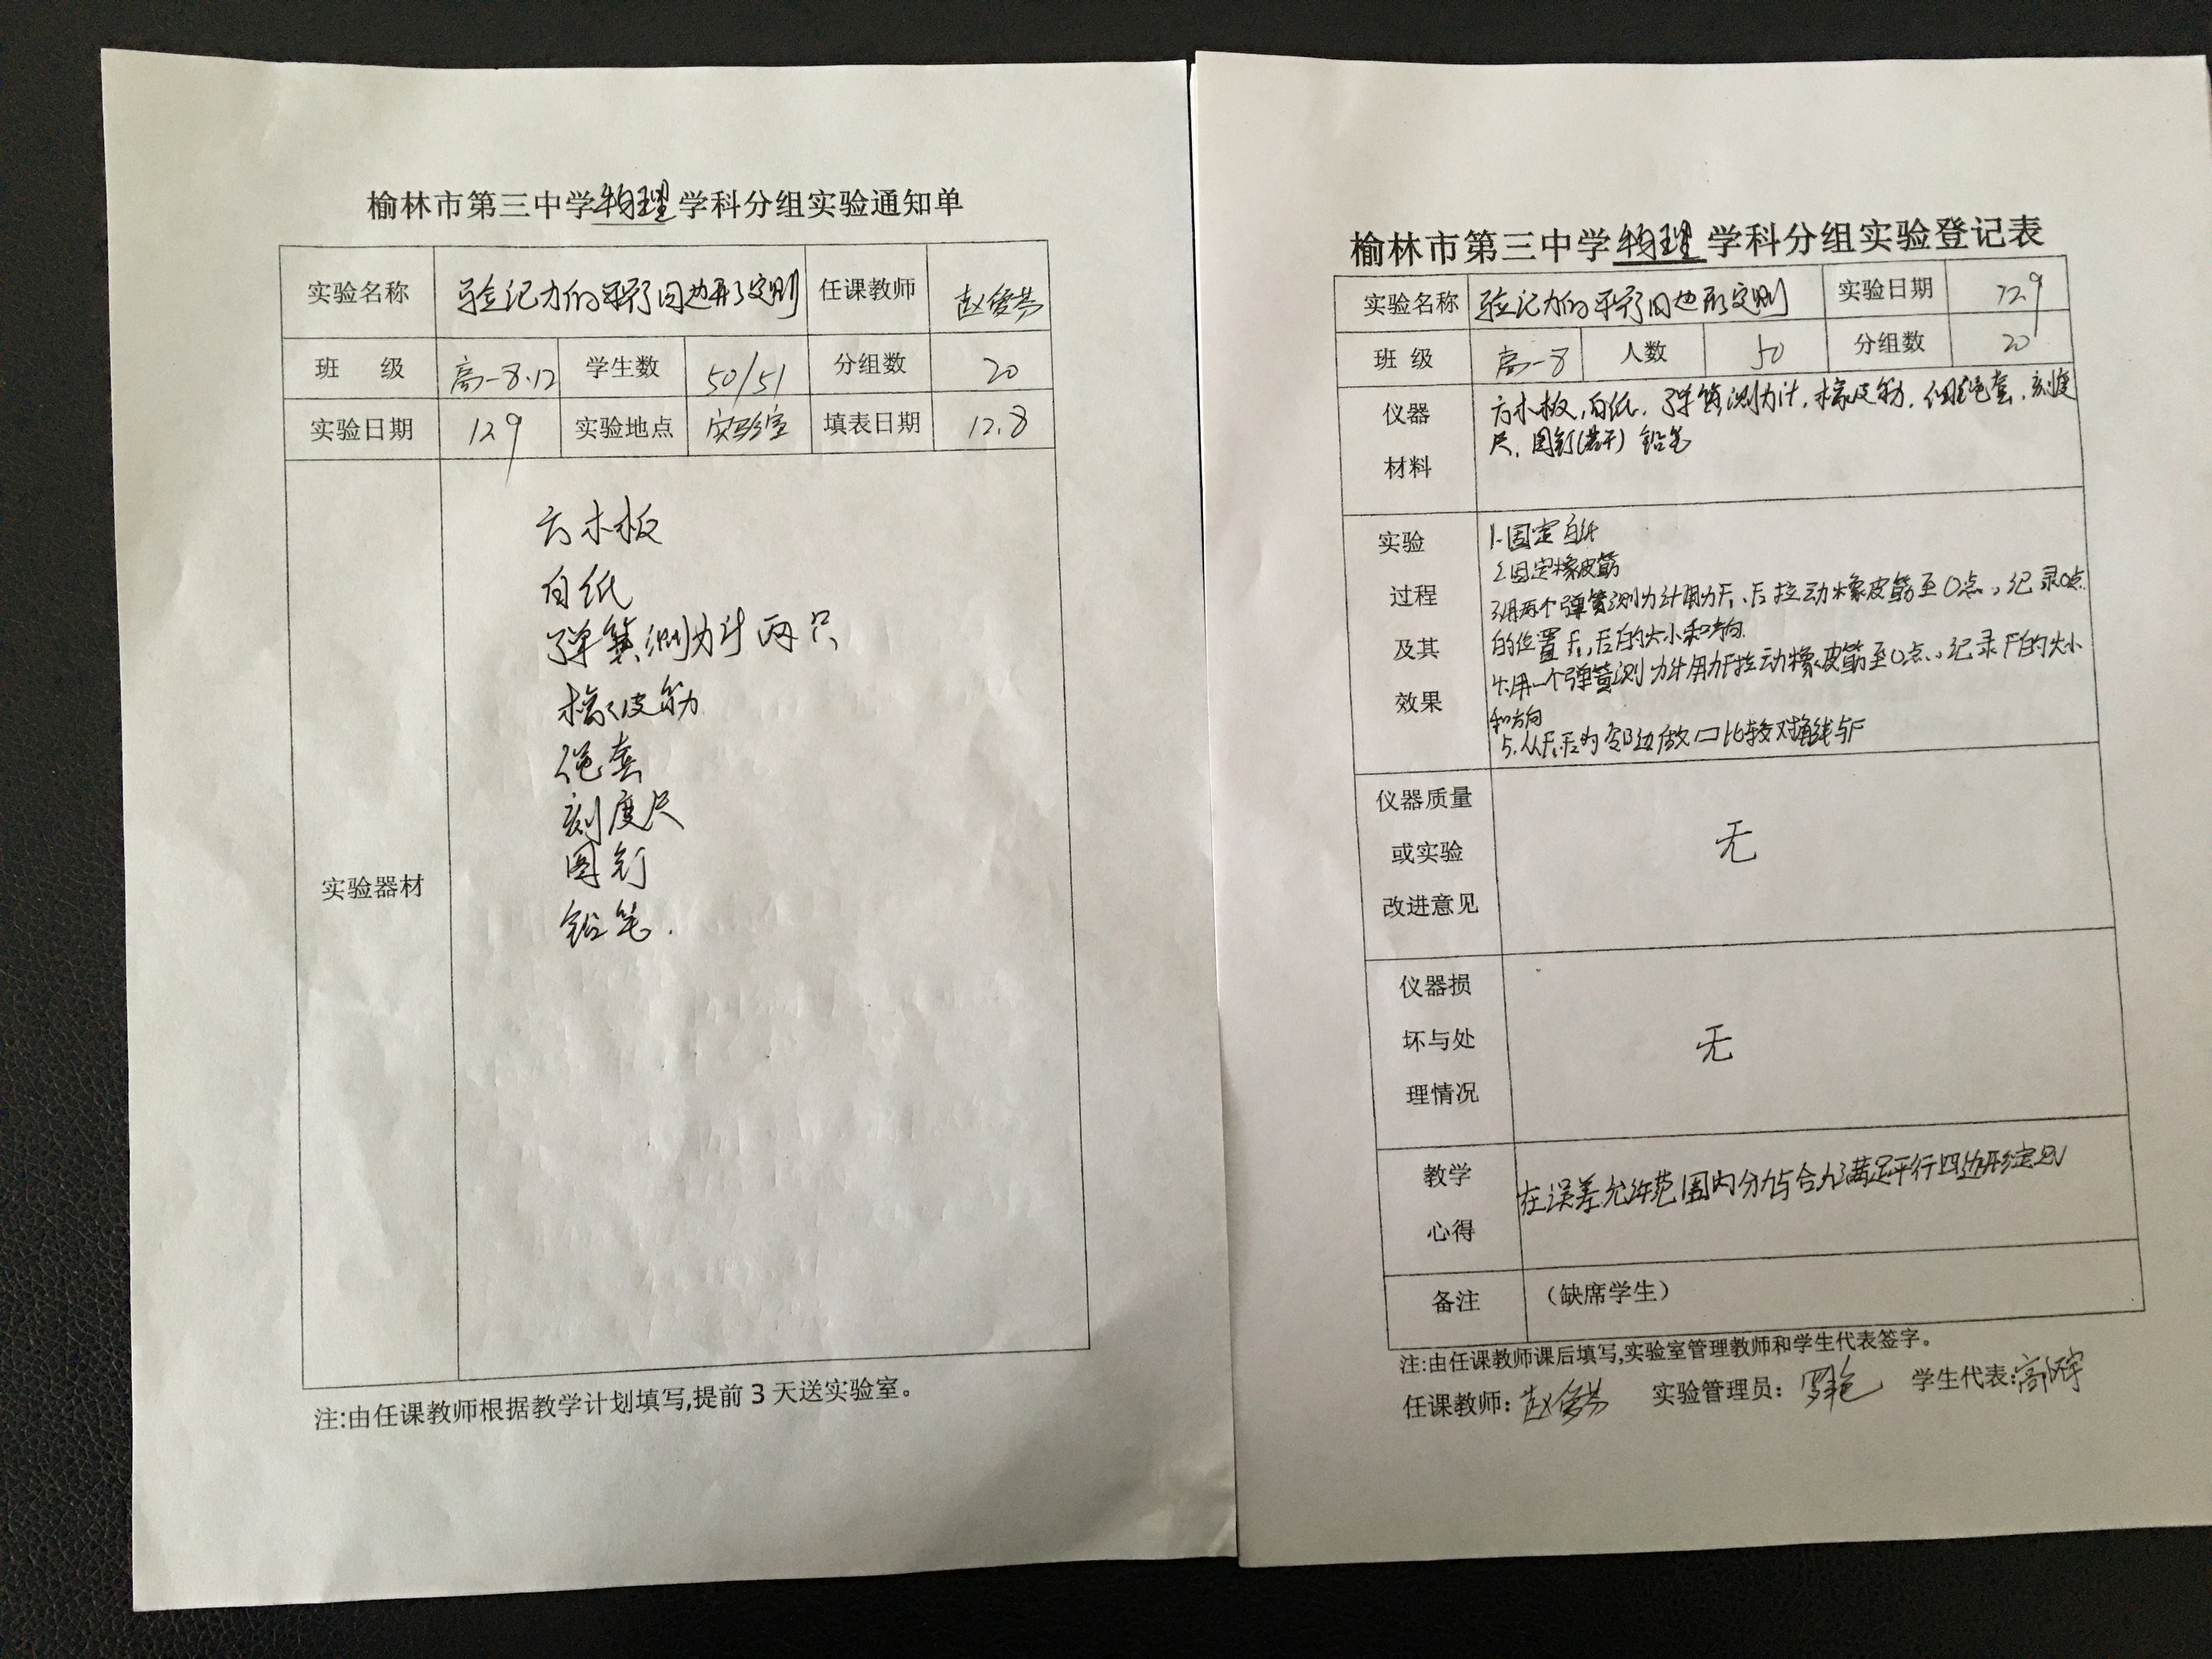 榆林市第三中学物理学科分组实验通知单
实验名称 验记力的平行四边形定则 任课教师 赵
班 级 高一8.12 学生数 50/51 分组数 20
实验日期 12.9 实验地点 实验室 填表日期 12.8
实验器材
方木板
白纸
弹簧测力计两只
橡皮筋
绳套
刻度尺
图钉
铅笔.
注:由任课教师根据教学计划填写,提前3天送实验室。
榆林市第三中学物理学科分组实验登记表
实验名称 验记力的平行四边形定则 实验日期 12.9
班 级 高一8 人数 50 分组数 20
仪器材料
方木板,白纸.弹簧测力计,橡皮筋.细绳套.刻度
尺.图钉(若干) 铅笔
实验过程及其效果
1.固定白纸
2.固定橡皮筋
3.用两个弹簧测力计用力F₁、F₂拉动橡皮筋至O点,记录O点
的位置F₁,F₂的大小和方向.
4.用一个弹簧测力计用力F拉动橡皮筋至O点,记录F的大小
和方向
5.从F₁F₂为邻边做▱比较对角线与F
仪器质量或实验改进意见 无
仪器损坏与处理情况 无
教学心得 在误差允许范围内分力与合力满足平行四边形定则
备注 (缺席学生)
注:由任课教师课后填写,实验室管理教师和学生代表签字。
任课教师: 赵 实验管理员: 罗艳 学生代表: 高